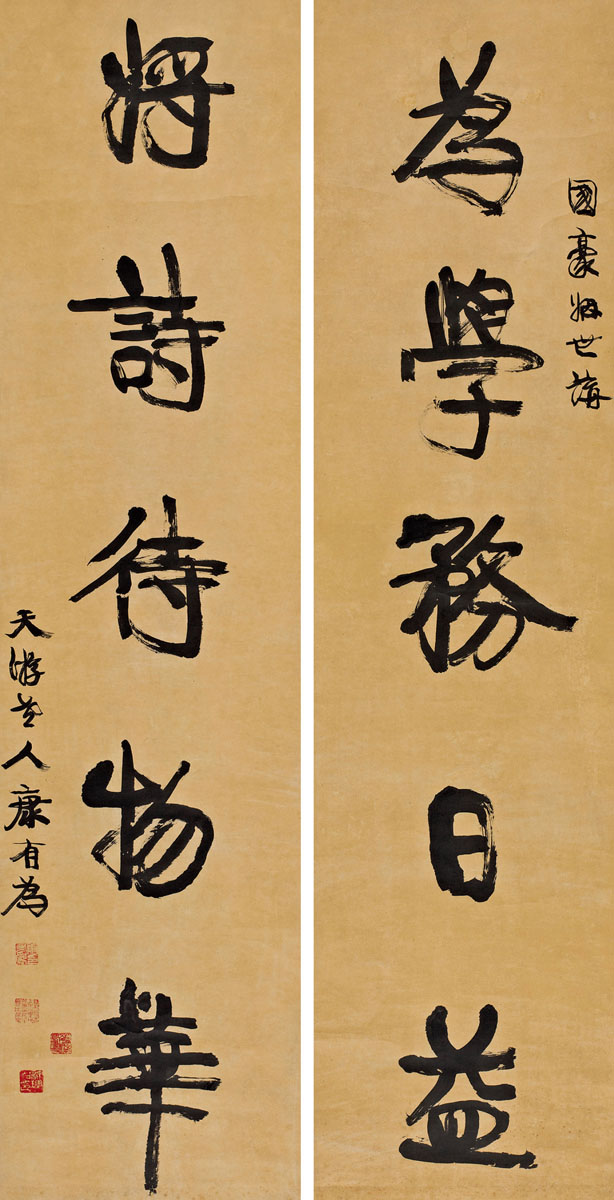 國豪姻世講
為學務日益
將詩待物華
天游老人康有為